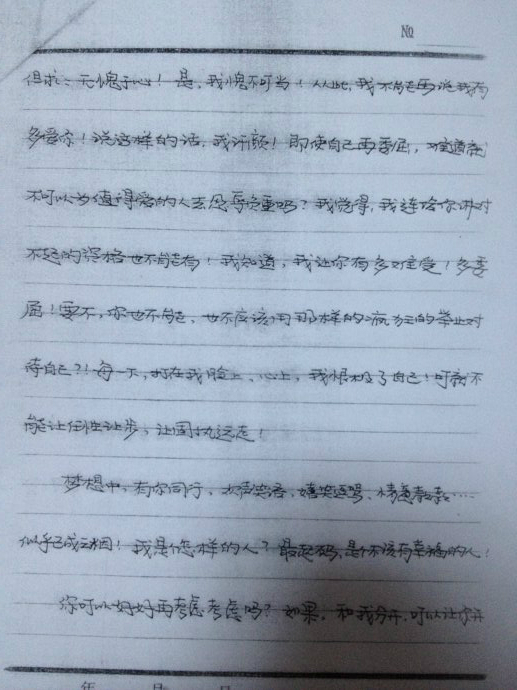 №
但求：无愧于心！是，我愧不可当！从此，我不能再说我有
多爱你！说这样的话，我汗颜！即使自己再委屈，难道就
不可以为值得爱的人去忍辱负重吗？我觉得，我连给你讲对
不起的资格也不能有！我知道，我让你有多难受！多委
屈！要不，你也不能、也不应该用那样的疯狂的举止对
待自己？！每一下，打在我脸上、心上，我恨极了自己！可我不
能让任性让步，让固执远走！
梦想中，有你同行，欢声笑语，嬉笑逗骂、情意款款……
似乎已成云烟！我是怎样的人？最起码，是个不该有幸福的人！
你可以好好再考虑考虑吗？如果，和我分开，可以让你开
年 月 日